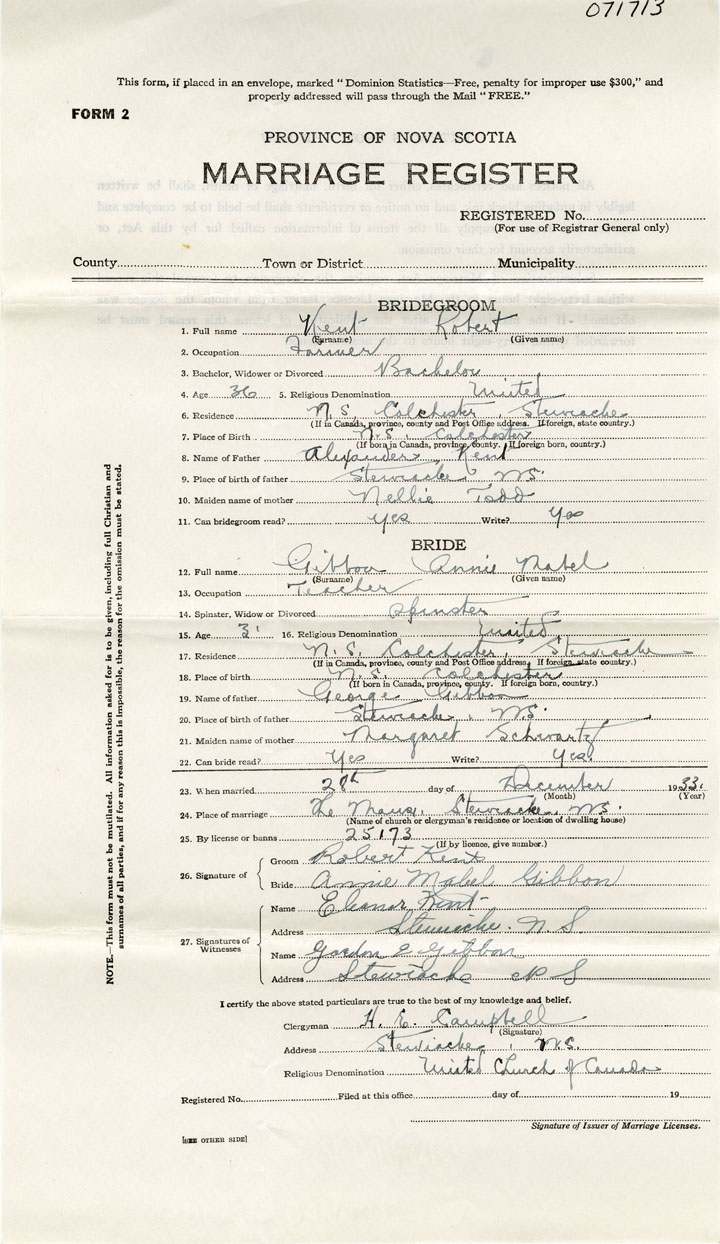 071713
This form, if placed in an envelope, marked "Dominion Statistics—Free, penalty for improper use $300," and
properly addressed will pass through the Mail "FREE."
FORM 2
PROVINCE OF NOVA SCOTIA
MARRIAGE REGISTER
REGISTERED No.
(For use of Registrar General only)
County Town or District Municipality
BRIDEGROOM
1. Full name Kent Robert
(Surname) (Given name)
2. Occupation Farmer
3. Bachelor, Widower or Divorced Bachelor
4. Age 36 5. Religious Denomination United
6. Residence N.S. Colchester, Stewiacke
(If in Canada, province, county and Post Office address. If foreign, state country.)
7. Place of Birth N.S. Colchester
(If born in Canada, province, county. If foreign born, country.)
8. Name of Father Alexander Kent
9. Place of birth of father Stewiacke NS.
10. Maiden name of mother Nellie Todd
11. Can bridegroom read? Yes Write? Yes
BRIDE
12. Full name Gibbon Annie Mabel
(Surname) (Given name)
13. Occupation Teacher
14. Spinster, Widow or Divorced Spinster
15. Age 16. Religious Denomination United
17. Residence N.S. Colchester, Stewiacke
(If in Canada, province, county and Post Office address. If foreign state country.)
18. Place of birth N.S. Colchester
(If born in Canada, province, county. If foreign born, country.)
19. Name of father George Gibbon
20. Place of birth of father Stewiacke, N.S.
21. Maiden name of mother Margaret Schwartz
22. Can bride read? Yes Write? Yes.
23. When married 28th day of December 1933.
(Month) (Year)
24. Place of marriage The Manse, Stewiacke, N.S.
(Name of church or clergyman's residence or location of dwelling house)
25. By license or banns 25173
(If by licence, give number.)
26. Signature of Groom Robert Kent
Bride Annie Mabel Gibbon
27. Signatures of Witnesses
Name Eleanor Kent
Address Stewiacke. N.S
Name Gordon E Gibbon
Address Stewiacke N S
I certify the above stated particulars are true to the best of my knowledge and belief.
Clergyman H. E. Campbell
(Signature)
Address Stewiacke, N.S.
Religious Denomination United Church of Canada
Registered No. Filed at this office day of 19
Signature of Issuer of Marriage Licenses.
[SEE OTHER SIDE]
NOTE.—This form must not be mutilated. All information asked for is to be given, including full Christian and
surnames of all parties, and if for any reason this is impossible, the reason for the omission must be stated.